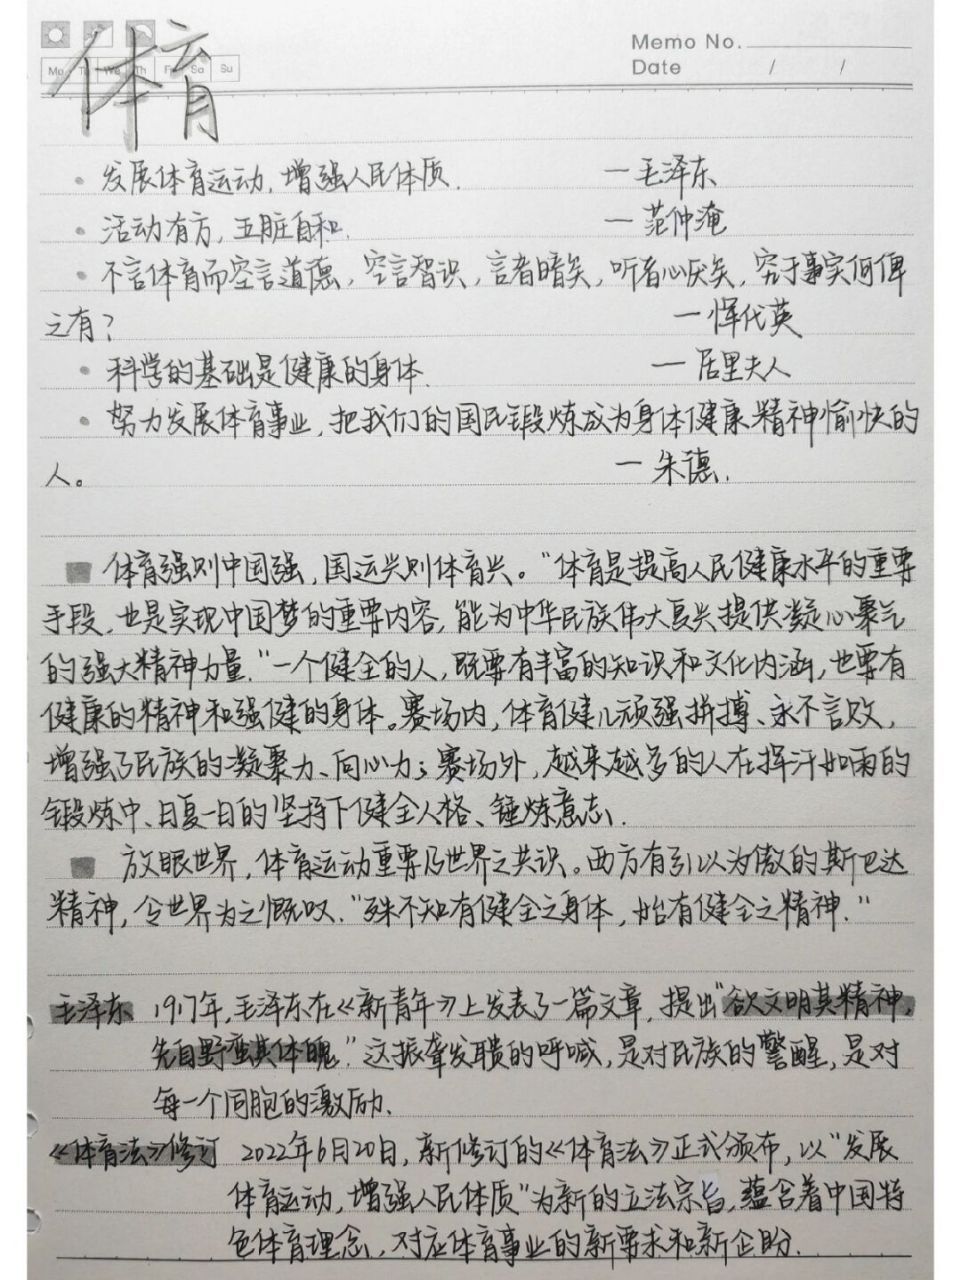 Memo No.
Mo Tu We Th Fr Sa Su
Date / /
体育
• 发展体育运动,增强人民体质. —毛泽东
• 活动有方,五脏自和. —范仲淹
• 不言体育而空言道德,空言智识,言者暗矣,听者心厌矣,究于事实何俾
之有? —恽代英
• 科学的基础是健康的身体. —居里夫人
• 努力发展体育事业,把我们的国民锻炼成为身体健康精神愉快的
人。 —朱德.
体育强则中国强,国运兴则体育兴。"体育是提高人民健康水平的重要
手段,也是实现中国梦的重要内容,能为中华民族伟大复兴提供凝心聚气
的强大精神力量."一个健全的人,既要有丰富的知识和文化内涵,也要有
健康的精神和强健的身体。赛场内,体育健儿顽强拼搏、永不言败,
增强了民族的凝聚力、向心力;赛场外,越来越多的人在挥汗如雨的
锻炼中、日复一日的坚持下健全人格、锤炼意志.
放眼世界,体育运动重要乃世界之共识。西方有引以为傲的斯巴达
精神,令世界为之慨叹."殊不知有健全之身体,始有健全之精神."
毛泽东 1917年,毛泽东在《新青年》上发表了一篇文章,提出"欲文明其精神,
先自野蛮其体魄."这振聋发聩的呼喊,是对民族的警醒,是对
每一个同胞的激励.
《体育法》修订 2022年6月20日,新修订的《体育法》正式颁布,以"发展
体育运动,增强人民体质"为新的立法宗旨,蕴含着中国特
色体育理念,对应体育事业的新要求和新企盼.